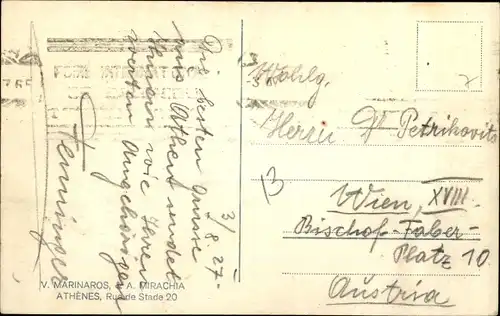 3/8. 27.
Die besten Grüsse
aus Athen sendet
Ihnen wie Ihren
werten Angehörigen
Henninger
V. MARINAROS, A. MIRACHIA
ATHÈNES, Rue de Stade 20
Wohlg.
Herrn Dr Petrikovits
Wien, XVIII.
Bischof-Faber-
Platz 10
Austria